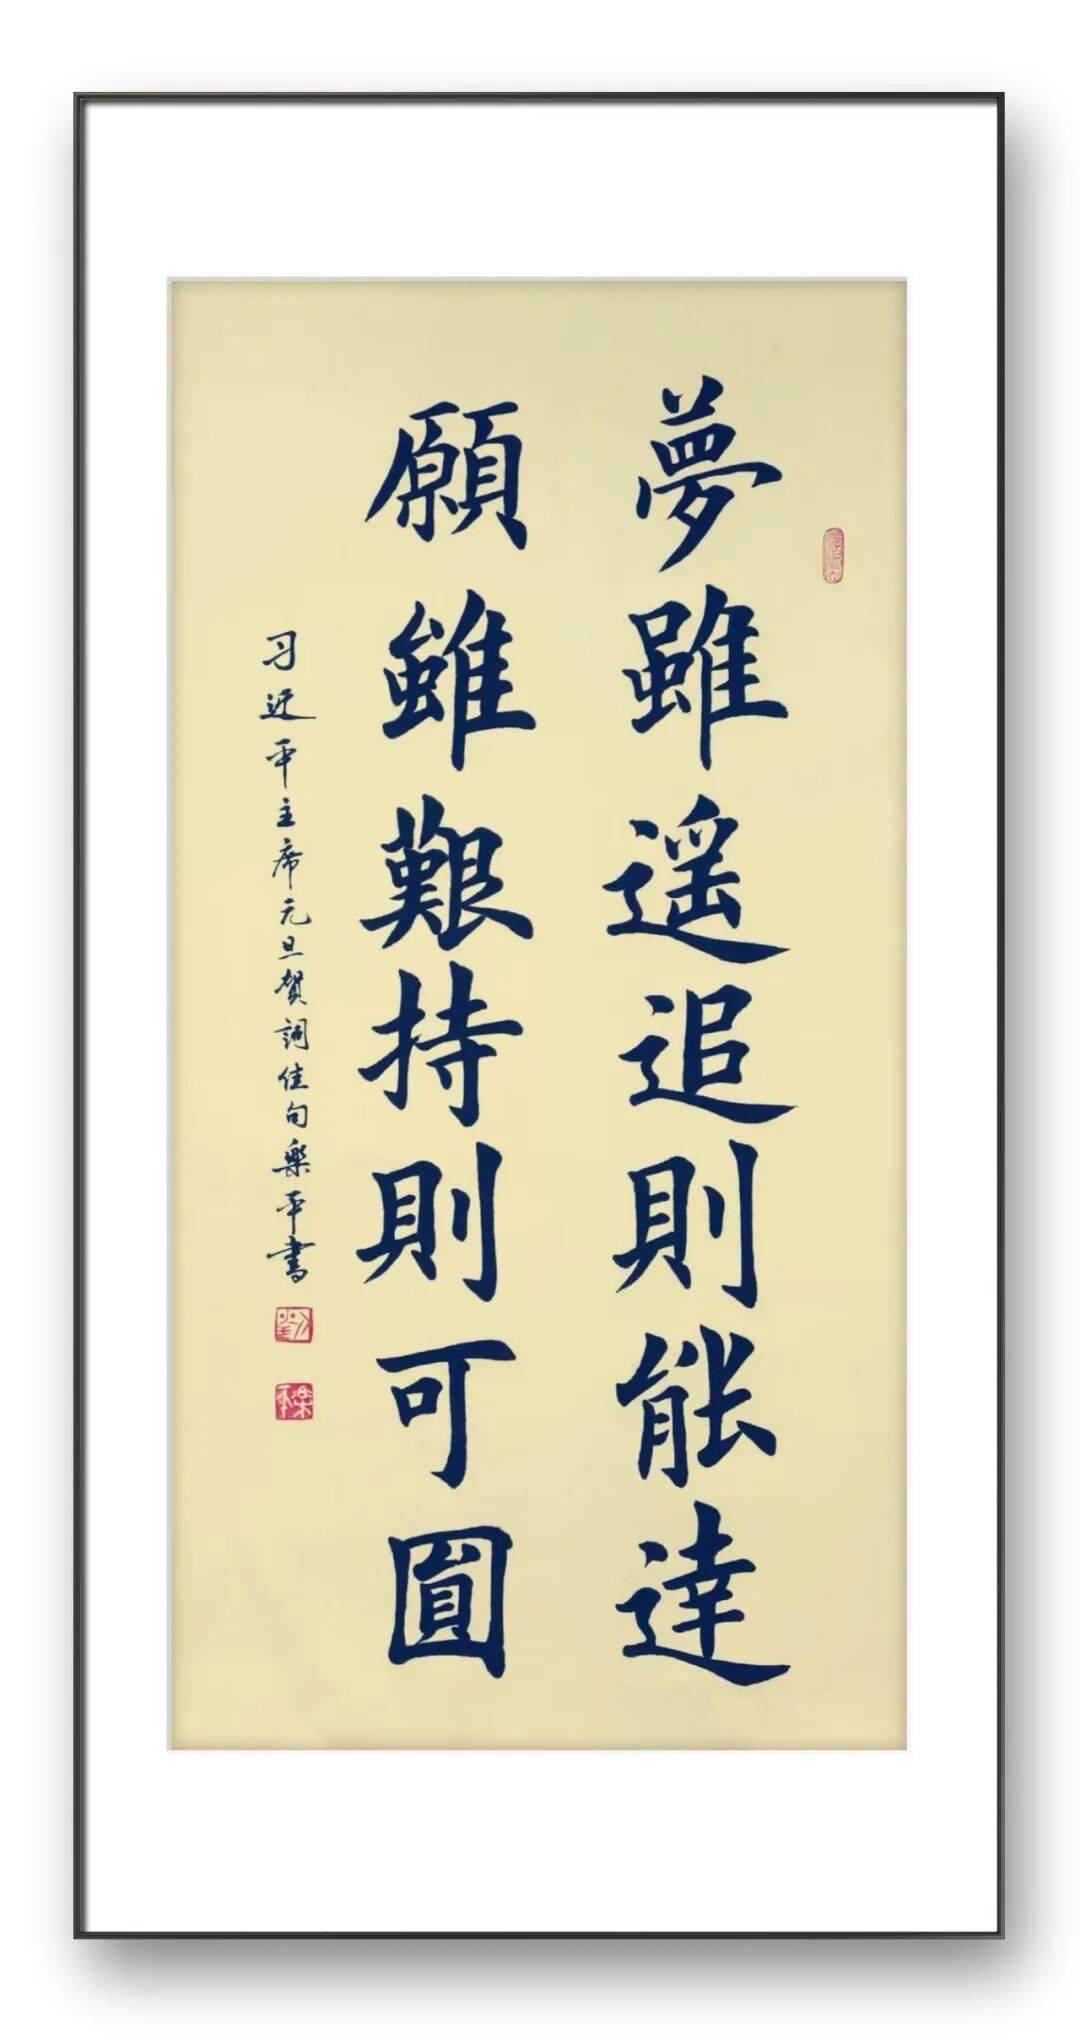 夢雖遥追則能達
願雖艱持則可圓
习近平主席元旦贺詞佳句樂平書